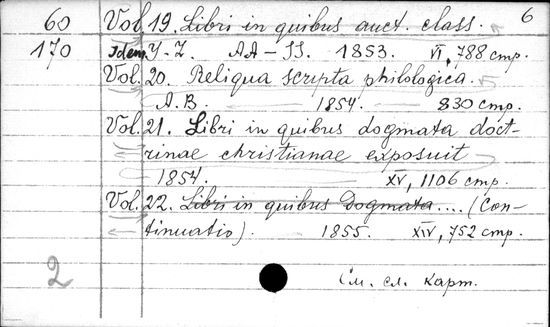 6
60 Vol. 19. Libri in quibus auct. class.
170 Idem Y. Z. AA - II. 1853. VI, 788 стр.
Vol. 20. Reliqua scripta philologica.
A. B. 1854. 830 стр.
Vol. 21. Libri in quibus dogmata doct-
rinae christianae exposuit
1854. XV, 1106 стр.
Vol. 22. Libri in quibus Dogmata .... (Con-
tinuatio). 1855. XIV, 752 стр.
2 См. сл. карт.